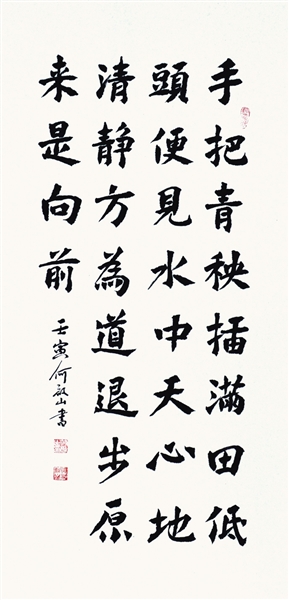 手把青秧插满田低
頭便見水中天心地
清静方為道退步原
来是向前
壬寅何啟山書